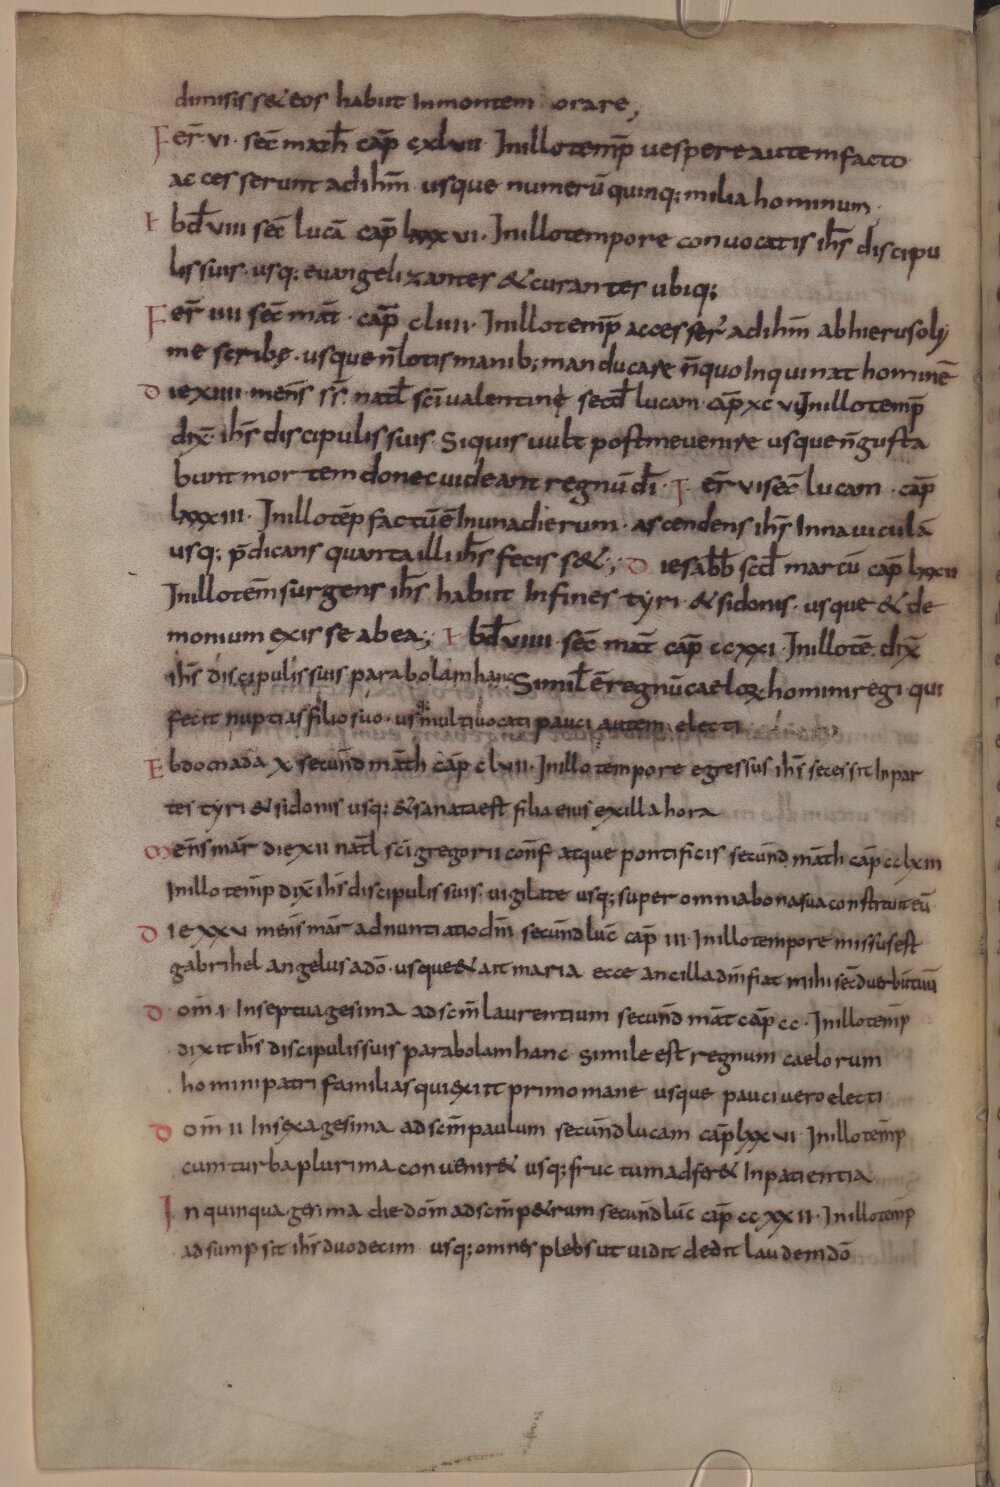 dimisisset eos habiit Inmontem orare;
Fer̄ vi · sec̄ math̄ cap̄ cxlvii Inillo temp̄ uespere autem facto
accesserunt ad ihm̄ usque numerū quinq; milia hominum ·
Ebd̄ viii sec̄ lucā cap̄ lxxxvi · Inillo tempore conuocatis ihs̄ discipu
lis suis · usq; euangelizantes & curantes ubiq;
Fer̄ iiii sec̄ mat̄ · cap̄ clvii · Inillo temp̄ accesser̄ ad ihm̄ ab hierusoly
me scribę · usque n̄ lotis manib; manducare n̄ quoinquinat hominē
Die xiiii · mens̄ ss̄ · natl̄ sc̄i ualentine secd̄ lucam · cap̄ xc vi Inillo temp̄
dix̄ ihs̄ discipulis suis · Siquis uult post me uenire usque n̄ gusta
bunt mortem donec uideant regnū dī · Fer̄ vi sec̄ lucam · cap̄
lxxxiii · Inillo tēp factū ē Inuna dierum · ascendens ihs̄ Innauiculā
usq; p̄dicans quanta illi ihs̄ fecisset; Die sabb̄ scd̄ marcū cap̄ lxxii
Inillo tem̄ surgens ihs̄ habiit Infines tyri · & sidonis · usque & de
monium exisse ab ea; Ebd̄ viiii · sec̄ mat̄ cap̄ ccxxi · Inillo tē · dix̄
ihs̄ discipulis suis parabolam hanc Simil̄ ē regnū caeloꝝ · homini regi · qui
fecit nuptias filio suo · usq; multi uocati pauci autem electi
Ebdomada x secund̄ math̄ cap̄ clvii · Inillo tempore egressus ihs̄ secessit In par
tes tyri & sidonis usq; & sanata est filia eius ex illa hora
Mens̄ mar̄ die xii natl̄ sc̄i gregorii conf̄ atque pontificis secund̄ math̄ cap̄ cclxiii
Inillo temp̄ dix̄ ihs̄ discipulis suis · uigilate usq; super omnia bona sua constituit eū ·
Die xxv mens̄ mar̄ adnuntiatio dn̄i secund̄ luc̄ cap̄ iii · Inillo tempore missus est
gabrihel angelus a dō · usque & ait maria ecce ancilla dn̄i fiat mihi sec̄d uerbū tuū
Dom̄ i · In septuagesima ad scm̄ laurentium secund̄ mat̄ cap̄ cc · Inillo temp̄
dixit ihs̄ discipulis suis parabolam hanc simile est regnum caelorum
homini patri familias qui exiit primo mane usque pauci uero electi
Dom̄ ii Insexagesima ad scm̄ paulum secund̄ lucam cap̄ lxxvi · Inillo temp̄
cum turba plurima conueniret usq; fructum adferet In patientia
In quinquagesima die dom̄ ad scm̄ petrum secund̄ luc̄ cap̄ ccxxii · Inillo temp̄
adsumpsit ihs̄ duodecim usq; omnes plebs ut uidit dedit laudem dō